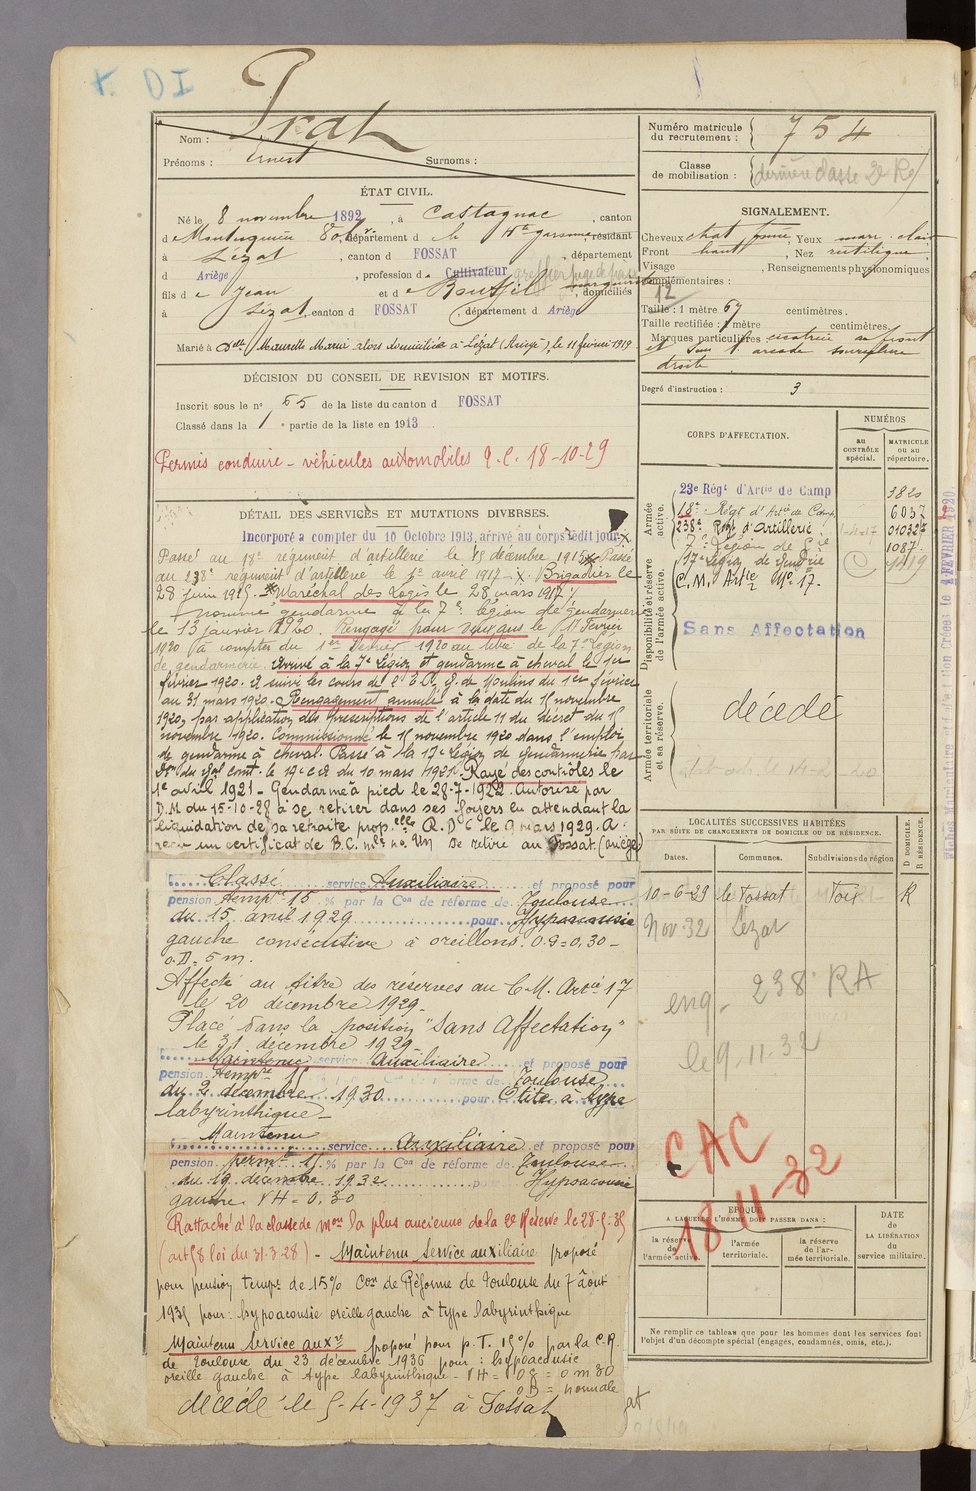 DI
Nom : Prat
Prénoms : Ernest Surnoms :
ÉTAT CIVIL.
Né le 8 novembre 1892, à Castagnac, canton
de Montesquieu Volv., département d la Hte Garonne, résidant
à Lézat, canton d FOSSAT, département
d Ariège, profession d Cultivateur
fils de Jean et de Boussil, domiciliés
à Lézat, canton d FOSSAT, département d Ariège
Marié à Dlle Maurette Marie alors domiciliée à Lézat (Ariège), le 11 février 1919
DÉCISION DU CONSEIL DE REVISION ET MOTIFS.
Inscrit sous le n° 55 de la liste du canton d FOSSAT
Classé dans la 1e partie de la liste en 1913
Permis conduire - véhicules automobiles 18-10-29
DÉTAIL DES SERVICES ET MUTATIONS DIVERSES.
Incorporé a compter du 10 Octobre 1913, arrivé au corps ledit jour
Passé au 18e régiment d'artillerie le 18 décembre 1915 Passé
au 238e régiment d'artillerie le 1er avril 1917 - Brigadier le
28 juin 1915 - Maréchal des Logis le 28 mars 1917
nommé gendarme à la 7e légion de Gendarmerie
le 13 janvier 1920. Rengagé pour deux ans le 17 Février
1920 à compter du 1er février 1920 au titre de la 7e Légion
de gendarmerie. Arrivé à la 7e Légion et gendarme à cheval le 1er
février 1920. A suivi les cours de l'E. de Moulins du 1er février
au 31 mars 1920. Rengagement annulé à la date du 15 novembre
1920, par application des prescriptions de l'article 11 du décret du 15
novembre 1920. Commissionné le 15 novembre 1920 dans l'emploi
de gendarme à cheval. Passé à la 17e Légion de gendarmerie par
Don du Gal Comt. le 19e C.A du 10 mars 1921. Rayé des contrôles le
1er avril 1921 - Gendarme à pied le 28-7-1922. Autorisé par
D.M du 15-10-28 à se retirer dans ses foyers en attendant la
liquidation de sa retraite prop.elle R.D.C le 9 mars 1929. A
reçu un certificat de B.C. mle no. Un Se retire au Fossat. (ariège)
Classé service Auxiliaire et proposé pour
pension tempre 15 % par la Con de réforme de Toulouse
du 15 avril 1929 pour Hypoacousie
gauche consécutive à oreillons. O.G = 0,30 -
O.D = 5 m.
Affecté au titre des réserves au C.M. Artie 17
le 20 décembre 1929 -
Placé dans la position "Sans Affectation"
le 31 décembre 1929 -
Maintenu service Auxiliaire et proposé pour
pension tempre 15 % par la Con de réforme de Toulouse
du 2 décembre 1930 pour Otite à type
labyrinthique -
Maintenu
service Auxiliaire et proposé pour
pension permte 15 % par la Con de réforme de Toulouse
du 19 décembre 1932 pour Hypoacousie
gauche VH = 0,30
Rattaché à la classe de mon la plus ancienne de la 2e Réserve le 28-5-35
(art 58 loi du 31-3-28) - Maintenu service auxiliaire proposé
pour pension tempre de 15% Con de Réforme de Toulouse du 7 août
1935 pour : hypoacousie oreille gauche à type labyrinthique
Maintenu Service auxre proposé pour p. T. 15% par la C.R.
de Toulouse du 23 décembre 1936 pour : hypoacousie
oreille gauche à type labyrinthique - VH = OG = 0 m 30
OD = normale
décédé le 5-4-1937 à Fossat
Numéro matricule du recrutement : 754
Classe de mobilisation : dernière classe 2e Re
SIGNALEMENT.
Cheveux chat foncé, Yeux marr. clair
Front haut, Nez rectiligne,
Visage , Renseignements physionomiques
complémentaires :
Taille : 1 mètre 67 centimètres.
Taille rectifiée : 1 mètre centimètres.
Marques particulières : cicatrice au front
et sous l'arcade sourcilière
droite
Degré d'instruction : 3
CORPS D'AFFECTATION.
NUMÉROS
AU CONTRÔLE spécial.
MATRICULE OU AU répertoire.
Armée active.
23e Régt d'Artie de Camp 3820
18e Régt d'Artie de Camp 6037
238e Regt d'Artillerie
7e Légion de Gie 1087
Disponibilité et réserve de l'armée active.
17e Légion de Gendrie
C.M. Artie No 17.
Sans Affectation
Armée territoriale et sa réserve.
décédé
LOCALITÉS SUCCESSIVES HABITÉES
PAR SUITE DE CHANGEMENTS DE DOMICILE OU DE RÉSIDENCE.
Dates. Communes. Subdivisions de région D. DOMICILE. R. RÉSIDENCE.
10-6-29 le Fossat Foix R
Nov. 32 Lézat
eng. 238e RA
le 9.11.32
CAC
18 11-32
ÉPOQUE
A LAQUELLE L'HOMME DOIT PASSER DANS :
la réserve de l'armée active.
l'armée territoriale.
la réserve de l'armée territoriale.
DATE de LA LIBÉRATION du service militaire.
Ne remplir ce tableau que pour les hommes dont les services font
l'objet d'un décompte spécial (engagés, condamnés, omis, etc.).